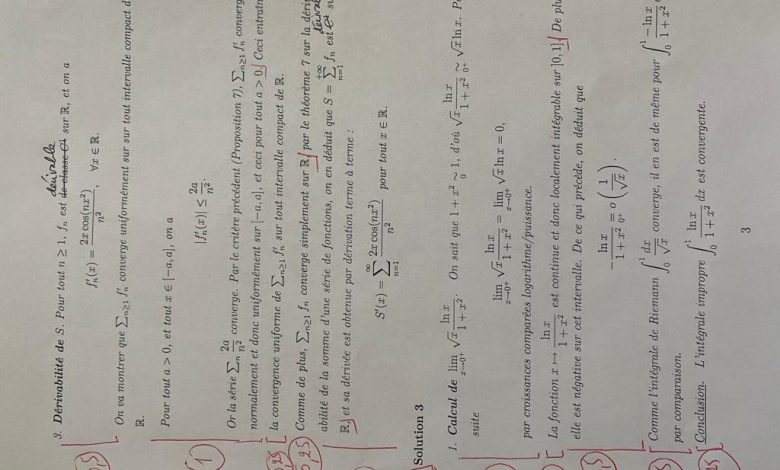 3. Dérivabilité de S. Pour tout n ≥ 1, fₙ est de classe C¹ dérivable sur ℝ, et on a
f'ₙ(x) = 2x cos(nx²) / n², ∀x ∈ ℝ.
On va montrer que ∑ₙ≥₁ f'ₙ converge uniformément sur tout intervalle compact d
ℝ.
Pour tout a > 0, et tout x ∈ [−a, a], on a
|f'ₙ(x)| ≤ 2a / n².
Or la série ∑ₙ 2a/n² converge. Par le critère précédent (Proposition 7), ∑ₙ≥₁ f'ₙ converg
normalement et donc uniformément sur [−a, a], et ceci pour tout a > 0. Ceci entraîn
la convergence uniforme de ∑ₙ≥₁ f'ₙ sur tout intervalle compact de ℝ.
Comme de plus, ∑ₙ≥₁ fₙ converge simplement sur ℝ, par le théorème 7 sur la dériv
abilité de la somme d'une série de fonctions, on en déduit que S = ∑ₙ₌₁^{+∞} fₙ est C¹ dérivable su
ℝ, et sa dérivée est obtenue par dérivation terme à terme :
S'(x) = ∑ₙ₌₁^∞ 2x cos(nx²) / n² pour tout x ∈ ℝ.
Solution 3
1. Calcul de lim_{x→0⁺} √x ln x / (1 + x²). On sait que 1 + x² ~_0 1, d'où √x ln x / (1 + x²) ~_{0⁺} √x ln x. P
suite
lim_{x→0⁺} √x ln x / (1 + x²) = lim_{x→0⁺} √x ln x = 0,
par croissances comparées logarithme/puissance.
La fonction x ↦ ln x / (1 + x²) est continue et donc localement intégrable sur ]0, 1]. De plu
elle est négative sur cet intervalle. De ce qui précède, on déduit que
− ln x / (1 + x²) =_{0⁺} o(1/√x).
Comme l'intégrale de Riemann ∫₀¹ dx/√x converge, il en est de même pour ∫₀¹ −ln x / (1 + x²)
par comparaison.
Conclusion. L'intégrale impropre ∫₀¹ ln x / (1 + x²) dx est convergente.
3
0,5
1
0,25